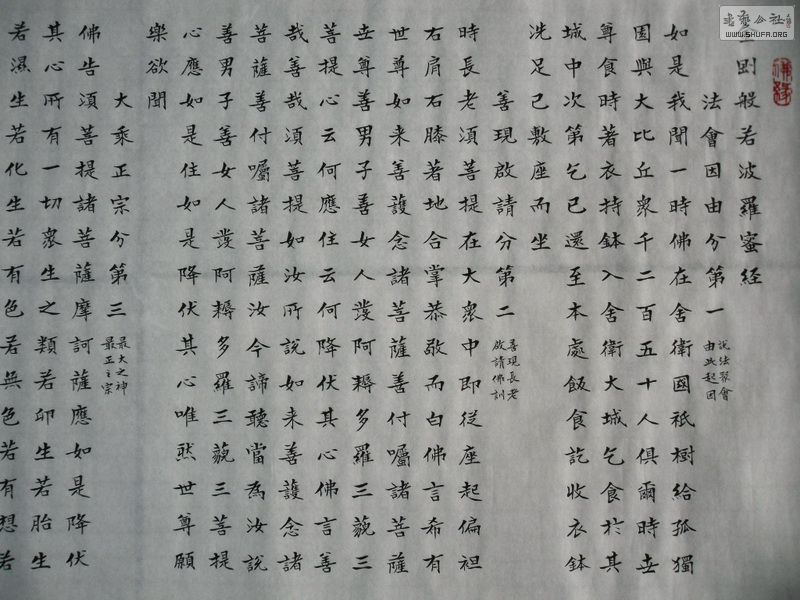 金剛般若波羅蜜経
法會因由分第一
說法聚會
由此起因
如是我聞一時佛在舍衛國祇樹給孤獨
園與大比丘衆千二百五十人俱爾時世
尊食時著衣持鉢入舍衛大城乞食於其
城中次第乞已還至本處飯食訖收衣鉢
洗足已敷座而坐
善現啟請分第二
善現長老
啟請佛訓
時長老須菩提在大衆中即從座起偏袒
右肩右膝著地合掌恭敬而白佛言希有
世尊如来善護念諸菩薩善付囑諸菩薩
世尊善男子善女人發阿耨多羅三藐三
菩提心云何應住云何降伏其心佛言善
哉善哉須菩提如汝所說如来善護念諸
菩薩善付囑諸菩薩汝今諦聽當為汝說
善男子善女人發阿耨多羅三藐三菩提
心應如是住如是降伏其心唯然世尊願
樂欲聞
大乘正宗分第三
最大之神
最正之宗
佛告須菩提諸菩薩摩訶薩應如是降伏
其心所有一切衆生之類若卵生若胎生
若濕生若化生若有色若無色若有想若
書藝公社
WWW.SHUFA.ORG